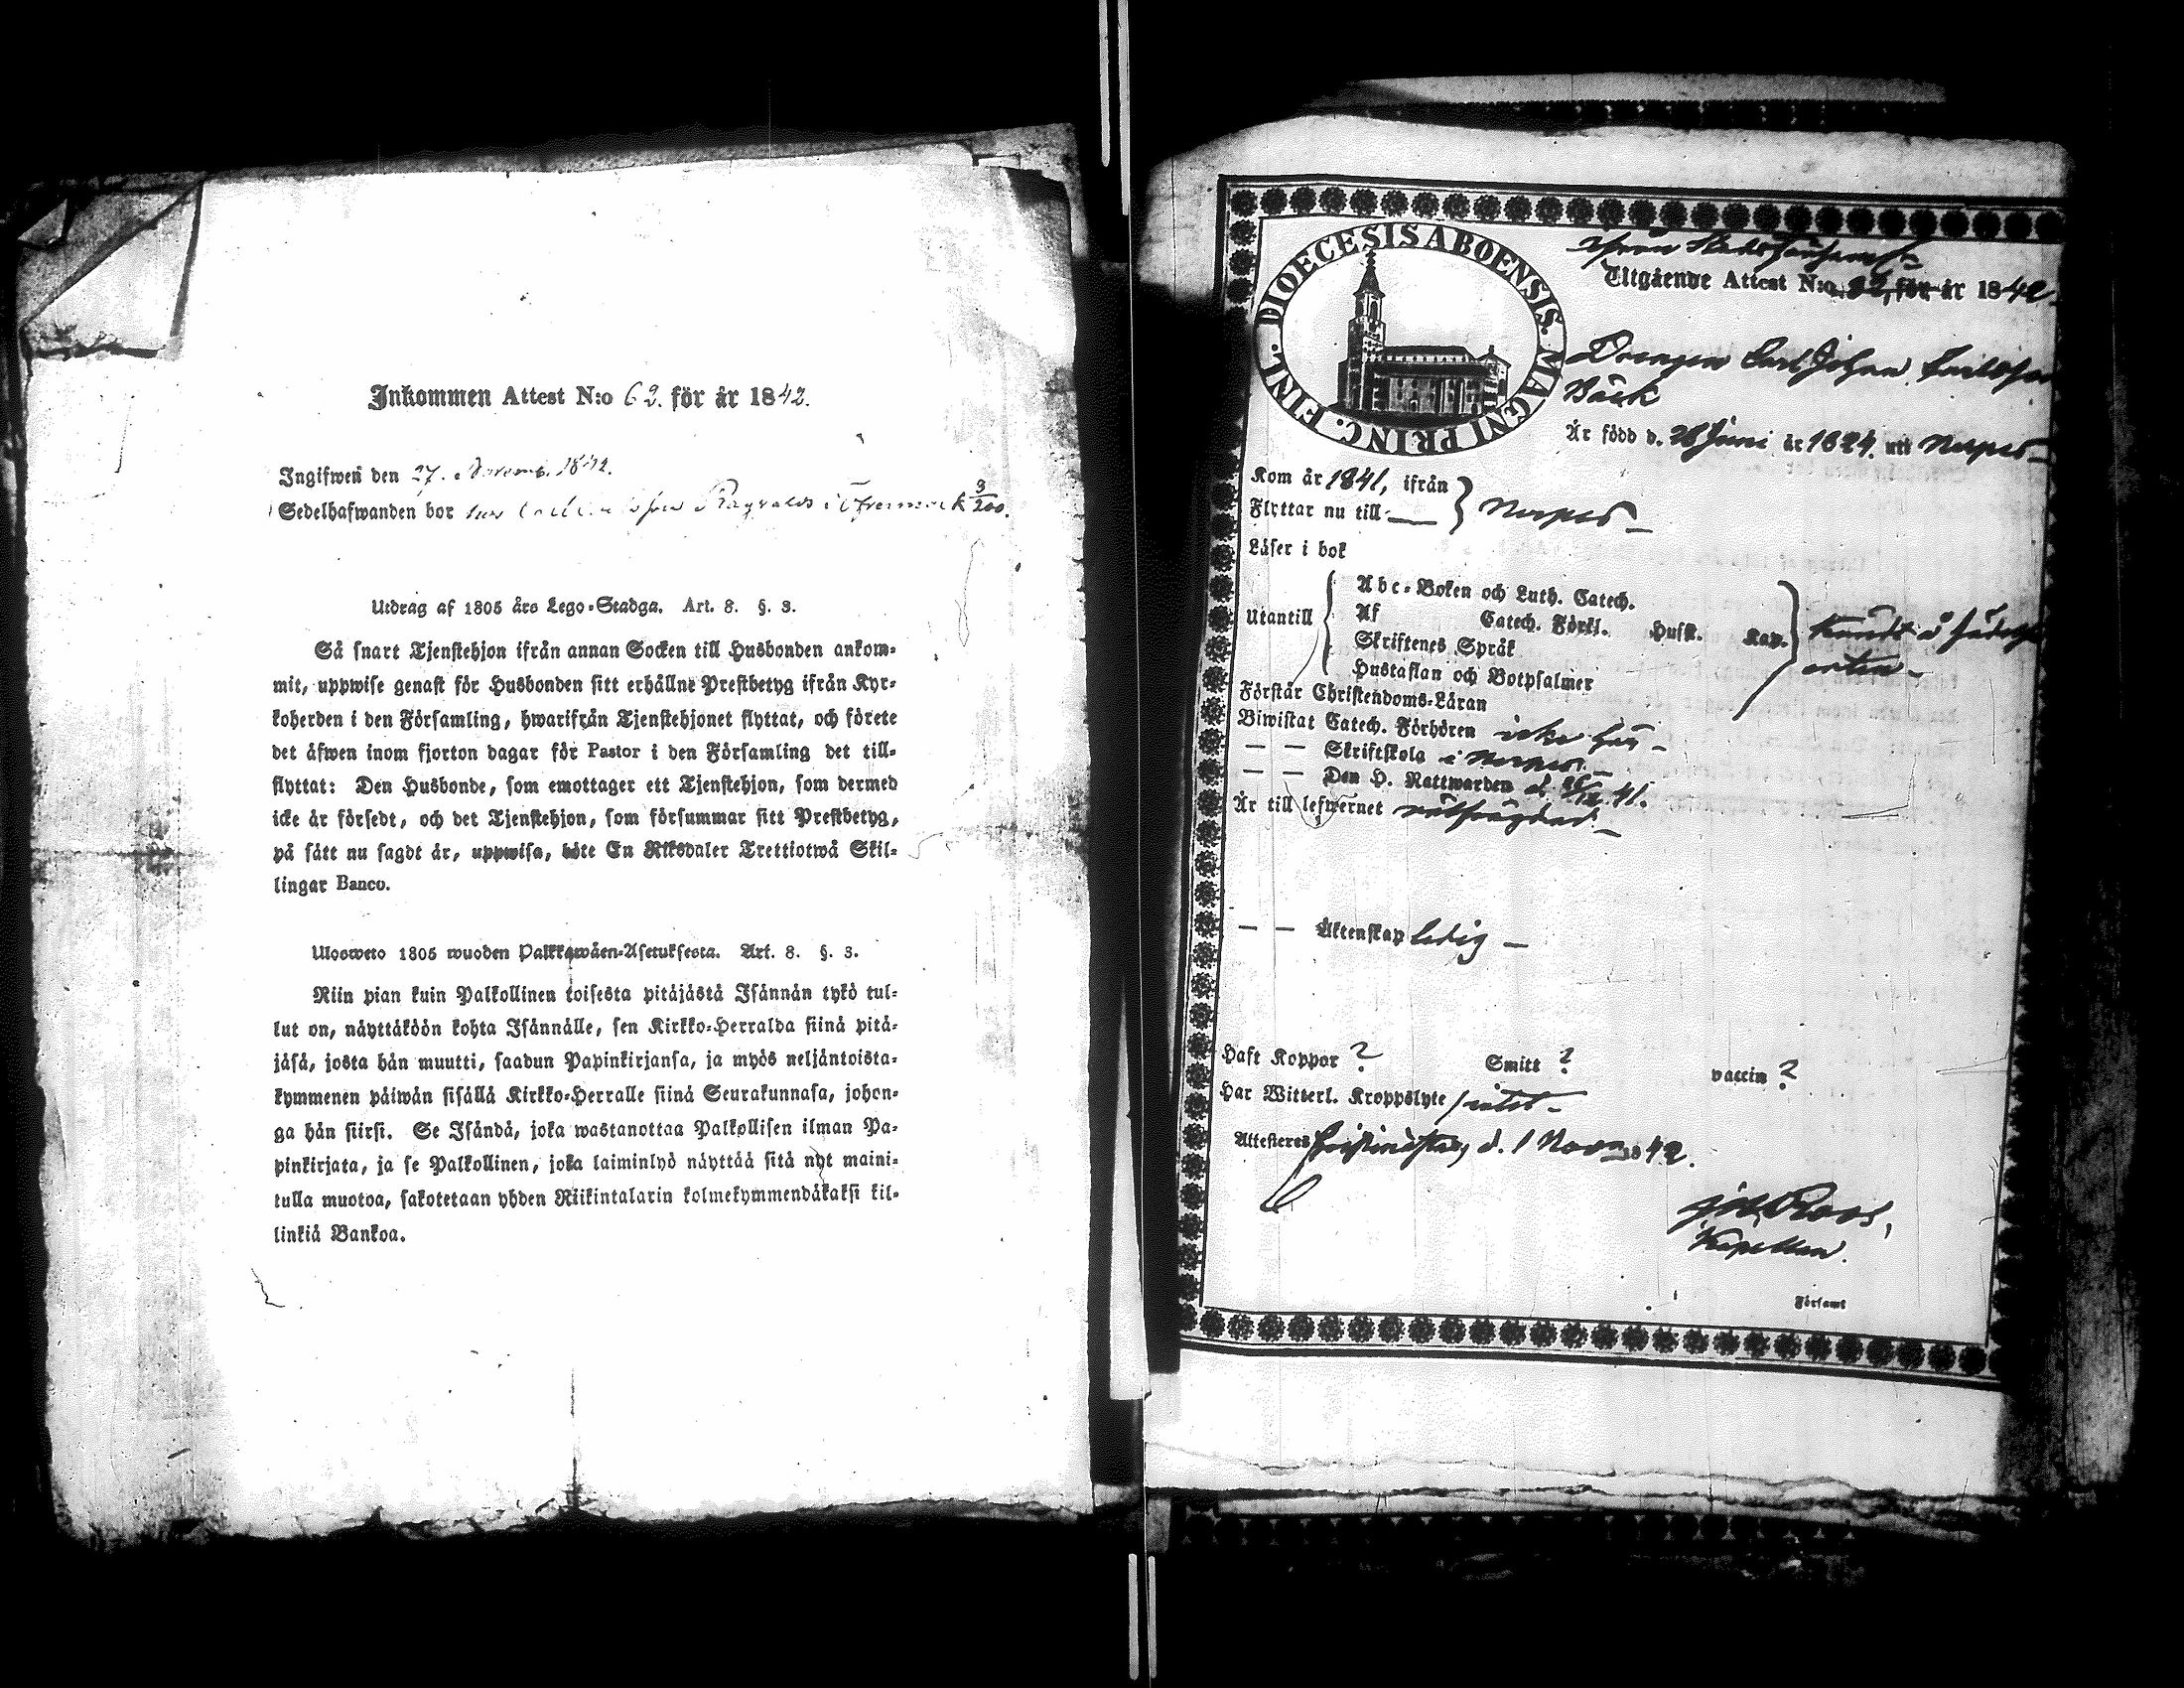 Inkommen Attest N:o 62. för år 1842.
Ingifwen den 27. Novemb. 1842.
Sedelhafwanden bor hos Ragnals i Öfvermark 9/200.
Utdrag af 1805 års Lego-Stadga. Art. 8. §. 3.
Så snart Tjenstehjon ifrån annan Socken till Husbonden ankom-
mit, uppwise genast för Husbonden sitt erhållne Prestbetyg ifrån Kyr-
koherden i den Församling, hwarifrån Tjenstehjonet flyttat, och förete
det äfwen inom fjorton dagar för Pastor i den Församling det till-
flyttat: Den Husbonde, som emottager ett Tjenstehjon, som dermed
icke är försedt, och det Tjenstehjon, som försummar sitt Prestbetyg,
på sätt nu sagdt är, uppwisa, böte En Riksdaler Trettiotwå Skil-
lingar Banco.
Ulosweto 1805 wuoden Palkkawäen-Asetuksesta. Art. 8. §. 3.
Niin pian kuin Palkollinen toisesta pitäjästä Isännän tykö tul-
lut on, näyttäköön kohta Isännälle, sen Kirkko-Herralda siinä pitä-
jäsä, josta hän muutti, saadun Papinkirjansa, ja myös neljäntoista-
kymmenen päiwän sisällä Kirkko-Herralle siinä Seurakunnasa, johon-
ga hän siirsi. Se Isändä, joka wastanottaa Palkollisen ilman Pa-
pinkirjata, ja se Palkollinen, joka laiminlyö näyttää sitä nyt maini-
tulla muotoa, sakotetaan yhden Riikintalarin kolmekymmendäkaksi kil-
linkiä Bankoa.
DIOECESIS ABOENSIS. MAGNI PRINC. FINL.
Utgående Attest N:o för år 1842.
Drengen Carl Johan
Bäck
Är född d. 28 Juni år 1824 uti Nerpes
Kom år 1841, ifrån
Flyttar nu till Nerpes
Läser i bok
Utantill
Abc-Boken och Luth. Catech.
Af Catech. Förkl. Husft. Kap.
Skriftenes Språk
Hustaflan och Botpsalmer
kändt å födelse
orten
Förstår Christendoms-Läran
Biwistat Catech. Förhören icke här
— — Skriftskola i Nerpes
— — Den H. Nattwarden d. 26/12 41.
Är till lefwernet välfrägdad
— — Äktenskap ledig
Haft Koppor ? Smitt ? vaccin ?
Har Witterl. Kroppslyte intet
Attesteras Christinestad d. 1 Nov 1842.
Joh Roos,
Kapellan.
Församl